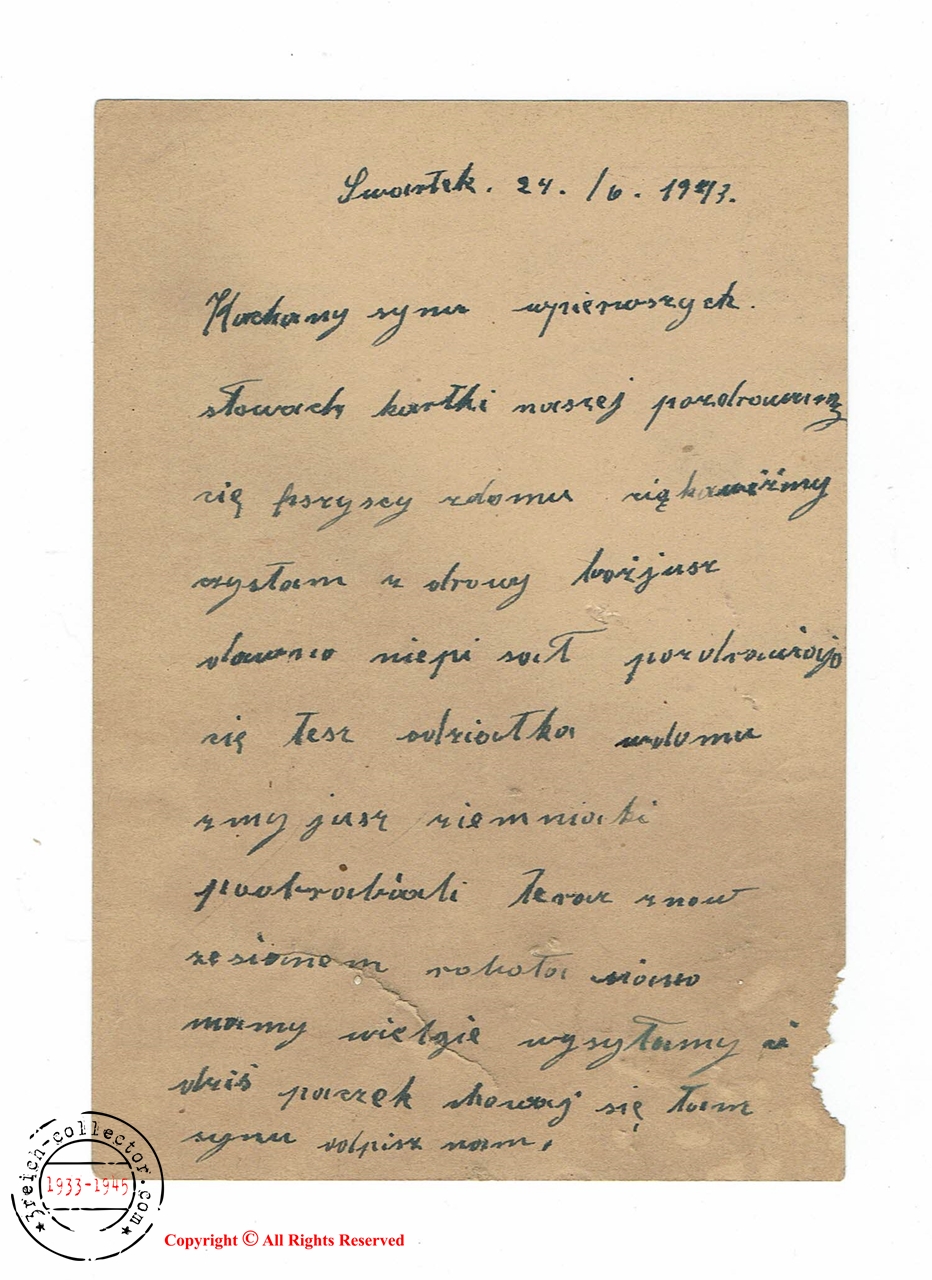 Swartek. 24. /6. 1943.
Kochany synu wpierwszych.
słowach kartki naszej pozdrowimy
cię fszyscy zdomu ciękawiźmy
czystam z drowy boźjusz
dawno niepi sał pozdrawiajo
cię tesz odziatka wdomu
zmy jusz ziemniaki
poobrabiali teraz znow
zesianem robota siano
mamy wielgie wysyłamy ci
dziś paczek chowaj się tam
synu odpisz nam.
3reich-collector.com
1933-1945
Copyright © All Rights Reserved